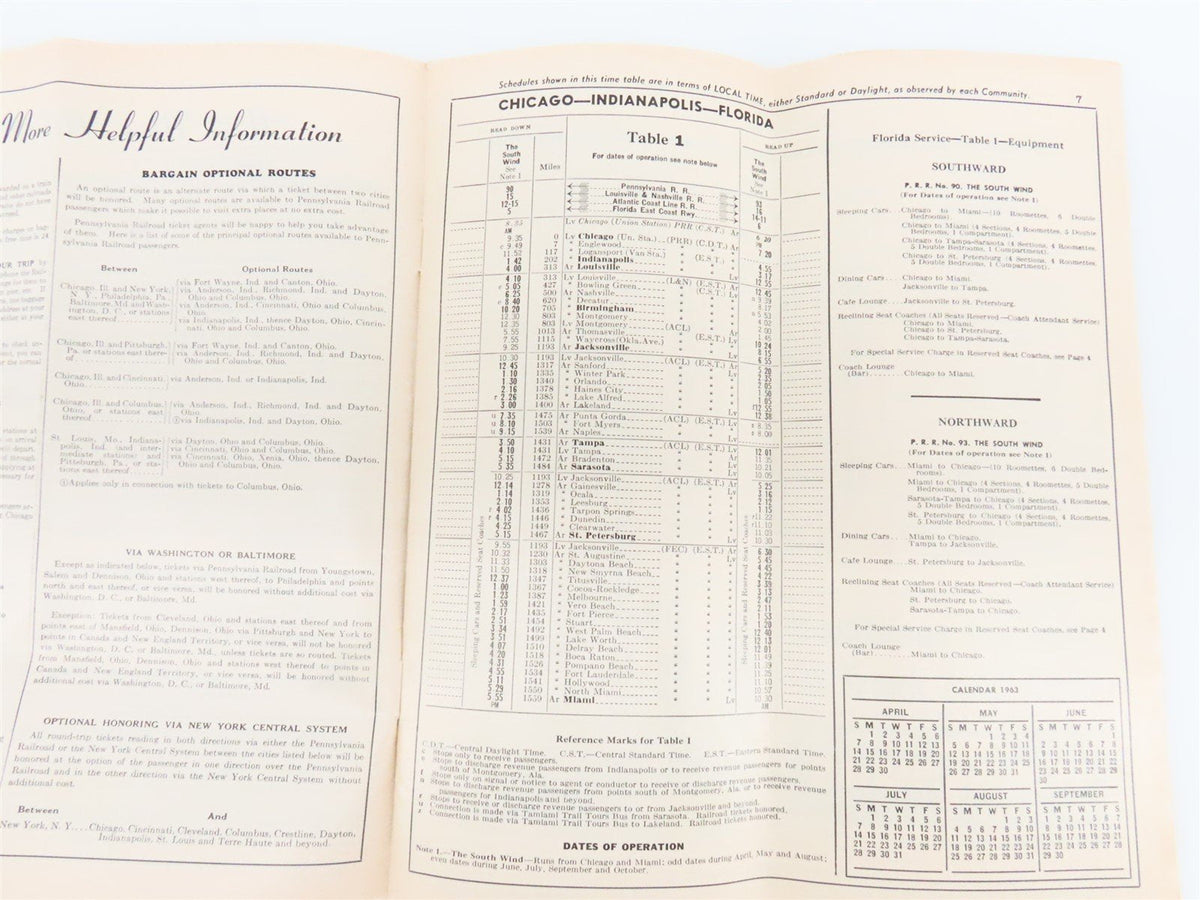 More Helpful Information
BARGAIN OPTIONAL ROUTES
An optional route is an alternate route via which a ticket between two cities
will be honored. Many optional routes are available to Pennsylvania Railroad
passengers which make it possible to visit extra places at no extra cost.
Pennsylvania Railroad ticket agents will be happy to help you take advantage
of them. Here is a list of some of the principal optional routes available to Penn-
sylvania Railroad passengers.
Between Optional Routes
Chicago, Ill. and New York, N. Y., Philadelphia, Pa., Baltimore, Md. and Wash-
ington, D. C., or stations east thereof
via Fort Wayne, Ind. and Canton, Ohio.
via Anderson, Ind., Richmond, Ind. and Dayton, Ohio and Columbus, Ohio.
via Anderson, Ind., Cincinnati, Ohio and Columbus, Ohio.
via Indianapolis, Ind., thence Dayton, Cincin-
nati, Ohio and Columbus, Ohio.
Chicago, Ill. and Pittsburgh, Pa. or stations east there-
of
via Fort Wayne, Ind. and Canton, Ohio.
via Anderson, Ind., Richmond, Ind. and Dayton, Ohio and Columbus, Ohio.
Chicago, Ill. and Cincinnati, Ohio
via Anderson, Ind. or Indianapolis, Ind.
Chicago, Ill. and Columbus, Ohio, or stations east thereof
via Anderson, Ind., Richmond, Ind. and Dayton, Ohio.
①via Indianapolis, Ind. and Dayton, Ohio.
St. Louis, Mo., Indiana-
polis, Ind. (and inter-
mediate stations) and Pittsburgh, Pa., or sta-
tions east thereof
via Dayton, Ohio and Columbus, Ohio.
via Cincinnati, Ohio and Columbus, Ohio.
via Cincinnati, Ohio, Xenia, Ohio, thence Dayton, Ohio and Columbus, Ohio.
①Applies only in connection with tickets to Columbus, Ohio.
VIA WASHINGTON OR BALTIMORE
Except as indicated below, tickets via Pennsylvania Railroad from Youngstown,
Salem and Dennison, Ohio and stations west thereof, to Philadelphia and points
north and east thereof, or vice versa, will be honored without additional cost via
Washington, D. C., or Baltimore, Md.
Exception: Tickets from Cleveland, Ohio and stations east thereof and from
points east of Mansfield, Ohio, Dennison, Ohio via Pittsburgh and New York to
points in Canada and New England Territory, or vice versa, will not be honored
via Washington, D. C., or Baltimore, Md., unless tickets are so routed. Tickets
from Mansfield, Ohio, Dennison, Ohio and stations west thereof to points in
Canada and New England Territory, or vice versa, will be honored without
additional cost via Washington, D. C., or Baltimore, Md.
OPTIONAL HONORING VIA NEW YORK CENTRAL SYSTEM
All round-trip tickets reading in both directions via either the Pennsylvania
Railroad or the New York Central System between the cities listed below will be
honored at the option of the passenger in one direction over the Pennsylvania
Railroad and in the other direction via the New York Central System without
additional cost.
Between And
New York, N. Y....Chicago, Cincinnati, Cleveland, Columbus, Crestline, Dayton,
Indianapolis, St. Louis and Terre Haute and beyond.
Schedules shown in this time table are in terms of LOCAL TIME, either Standard or Daylight, as observed by each Community. 7
CHICAGO—INDIANAPOLIS—FLORIDA
READ DOWN Table 1 READ UP
The South Wind See Note 1 Miles For dates of operation see note below The South Wind See Note 1
90 Pennsylvania R. R. 93
15 Louisville & Nashville R. R. 16
12-15 Atlantic Coast Line R. R. 14-11
5 Florida East Coast Rwy. 6
Lv Chicago (Union Station) PRR (C.S.T.) Ar
AM PM
9.35 0 Lv Chicago (Un. Sta.) (PRR) (C.D.T.) Ar
c 9.49 7 " Englewood 7 20
11.52 117 " Logansport (Van Sta.)
1 42 202 " Indianapolis (E.S.T.) 4 55
4 00 313 Ar Louisville Lv
4 10 313 Lv Louisville (L&N) (E.S.T.) Ar 12 55
e 5 05 427 " Bowling Green
6 25 500 Ar Nashville (C.S.T.)
e 8 40 620 " Decatur
10 20 705 " Birmingham
12.30 803 " Montgomery 4 02
12.35 803 Lv Montgomery (ACL)
5.55 1013 Ar Thomasville
7.55 1115 " Waycross (Okla. Ave.) (E.S.T.) 10 24
9.25 1193 Ar Jacksonville Lv 8 15
10.30 1193 Lv Jacksonville (ACL) (E.S.T.) Ar 6 55
12 45 1317 Ar Sanford 5 20
1 10 1335 " Winter Park
1 30 1340 " Orlando
2 16 1378 " Haines City
r 2.26 1385 " Lake Alfred
3 00 1400 " Lakeland Lv
u 7 35 1475 Ar Punta Gorda (ACL) (E.S.T.) Lv
u 8.10 1503 " Fort Myers
u 9.15 1539 " Naples
3 50 1431 Ar Tampa (ACL) (E.S.T.) Lv 12 01
4 10 1431 Lv Tampa Ar
5 15 1472 Ar Bradenton
5 35 1484 Ar Sarasota Lv
10.25 1193 Lv Jacksonville (ACL) (E.S.T.) Ar 5 25
12 14 1278 Ar Gainesville Lv 3 16
1 14 1319 " Ocala 2 12
2 10 1353 " Leesburg 1 15
r 4 02 1436 " Tarpon Springs
r 4 15 1446 " Dunedin
4 25 1449 " Clearwater
5 15 1467 Ar St. Petersburg Lv 10 30
9.55 1193 Lv Jacksonville (FEC) (E.S.T.) Ar 6 30
10 32 1230 Ar St. Augustine Lv 5 45
11.33 1303 " Daytona Beach 4 45
11.50 1318 " New Smyrna Beach 4 22
12 37 1347 " Titusville 3 39
1 00 1367 " Cocoa-Rockledge 3 13
1 23 1387 " Melbourne 2 47
1 59 1421 " Vero Beach 2 11
2 17 1435 " Fort Pierce 1 53
2 51 1454 " Stuart 1 20
3 34 1492 " West Palm Beach 12 40
3 51 1499 " Lake Worth 12 13
4 07 1510 " Delray Beach 12 01
4 20 1518 " Boca Raton
4 31 1526 " Pompano Beach
4 55 1534 " Fort Lauderdale
5 11 1541 " Hollywood
5 29 1550 " North Miami 10 57
5 55 1559 Ar Miami Lv 10 30
PM AM
Sleeping Cars and Reserved Seat Coaches
Sleeping Cars and Reserved Seat Coaches
Reference Marks for Table 1
C.D.T.—Central Daylight Time. C.S.T.—Central Standard Time. E.S.T.—Eastern Standard Time.
c Stops only to receive passengers.
e Stops to discharge revenue passengers from Indianapolis or to receive revenue passengers for points
south of Montgomery, Ala.
f Stops only on signal or notice to agent or conductor to receive or discharge revenue passengers.
Stops to discharge revenue passengers from points south of Montgomery, Ala. or to receive revenue
passengers for Indianapolis and beyond.
r Stops to receive or discharge revenue passengers to or from Jacksonville and beyond.
u Connection is made via Tamiami Trail Tours Bus from Sarasota. Railroad tickets honored.
Connection is made via Tamiami Trail Tours Bus to Lakeland. Railroad tickets honored.
DATES OF OPERATION
Note 1.—The South Wind—Runs from Chicago and Miami; odd dates during April, May and August;
even dates during June, July, September and October.
Florida Service—Table 1—Equipment
SOUTHWARD
P. R. R. No. 90. THE SOUTH WIND
(For Dates of operation see Note 1)
Sleeping Cars. Chicago to Miami—(10 Roomettes, 6 Double
Bedrooms).
Chicago to Miami (4 Sections, 4 Roomettes, 5 Double
Bedrooms, 1 Compartment).
Chicago to Tampa-Sarasota (4 Sections, 4 Roomettes,
5 Double Bedrooms, 1 Compartment).
Chicago to St. Petersburg (4 Sections, 4 Roomettes,
5 Double Bedrooms, 1 Compartment).
Dining Cars. Chicago to Miami.
Jacksonville to Tampa.
Cafe Lounge....Jacksonville to St. Petersburg.
Reclining Seat Coaches (All Seats Reserved—Coach Attendant Service)
Chicago to Miami.
Chicago to St. Petersburg.
Chicago to Tampa-Sarasota.
For Special Service Charge in Reserved Seat Coaches, see Page 4
Coach Lounge
(Bar)....... Chicago to Miami.
NORTHWARD
P. R. R. No. 93. THE SOUTH WIND
(For Dates of operation see Note 1)
Sleeping Cars. Miami to Chicago—(10 Roomettes, 6 Double Bed-
rooms).
Miami to Chicago (4 Sections, 4 Roomettes, 5 Double
Bedrooms, 1 Compartment).
Sarasota-Tampa to Chicago (4 Sections, 4 Roomettes,
5 Double Bedrooms, 1 Compartment).
St. Petersburg to Chicago (4 Sections, 4 Roomettes,
5 Double Bedrooms, 1 Compartment).
Dining Cars. Miami to Chicago.
Tampa to Jacksonville.
Cafe Lounge....St. Petersburg to Jacksonville.
Reclining Seat Coaches (All Seats Reserved—Coach Attendant Service)
Miami to Chicago.
St. Petersburg to Chicago.
Sarasota-Tampa to Chicago.
For Special Service Charge in Reserved Seat Coaches, see Page 4
Coach Lounge
(Bar)....... Miami to Chicago.
CALENDAR 1963
APRIL MAY JUNE
S M T W T F S S M T W T F S S M T W T F S
1 2 3 4 5 6 1 2 3 4 1
7 8 9 10 11 12 13 5 6 7 8 9 10 11 2 3 4 5 6 7 8
14 15 16 17 18 19 20 12 13 14 15 16 17 18 9 10 11 12 13 14 15
21 22 23 24 25 26 27 19 20 21 22 23 24 25 16 17 18 19 20 21 22
28 29 30 26 27 28 29 30 31 23 24 25 26 27 28 29
30
JULY AUGUST SEPTEMBER
S M T W T F S S M T W T F S S M T W T F S
1 2 3 4 5 6 1 2 3 1 2 3 4 5 6 7
7 8 9 10 11 12 13 4 5 6 7 8 9 10 8 9 10 11 12 13 14
14 15 16 17 18 19 20 11 12 13 14 15 16 17 15 16 17 18 19 20 21
21 22 23 24 25 26 27 18 19 20 21 22 23 24 22 23 24 25 26 27 28
28 29 30 31 25 26 27 28 29 30 31 29 30